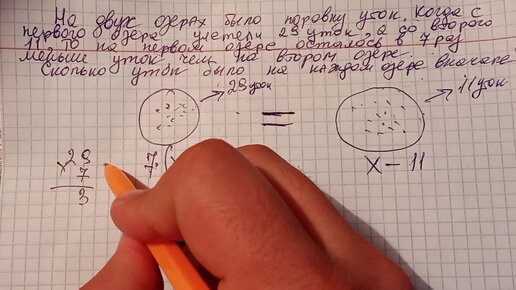 На двух озерах было поровну уток. Когда с
первого озера улетели 29 уток, а со второго
11, то на первом озере осталось в 7 раз
меньше уток чем на втором озере.
Сколько уток было на каждом озере вначале
29 уток
=
11 уток
29
× 7
3
7(
x - 11